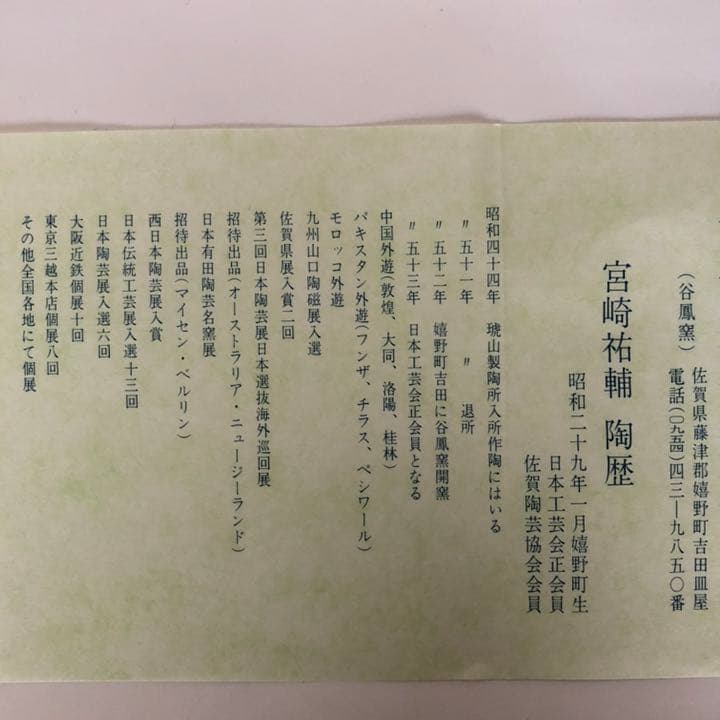 (谷鳳窯) 佐賀県藤津郡嬉野町吉田皿屋
電話(〇九五四)四三―九八五〇番
宮崎祐輔 陶歴
昭和二十九年一月嬉野町生
日本工芸会正会員
佐賀陶芸協会会員
昭和四十四年 琥山製陶所入所作陶にはいる
〃 五十一年 〃 退所
〃 五十二年 嬉野町吉田に谷鳳窯開窯
〃 五十三年 日本工芸会正会員となる
中国外遊(敦煌、大同、洛陽、桂林)
パキスタン外遊(フンザ、チラス、ペシワール)
モロッコ外遊
九州山口陶磁展入選
佐賀県展入賞二回
第三回日本陶芸展日本選抜海外巡回展
招待出品(オーストラリア・ニュージーランド)
日本有田陶芸名窯展
招待出品(マイセン・ベルリン)
西日本陶芸展入賞
日本伝統工芸展入選十三回
日本陶芸展入選六回
大阪近鉄個展十回
東京三越本店個展八回
その他全国各地にて個展